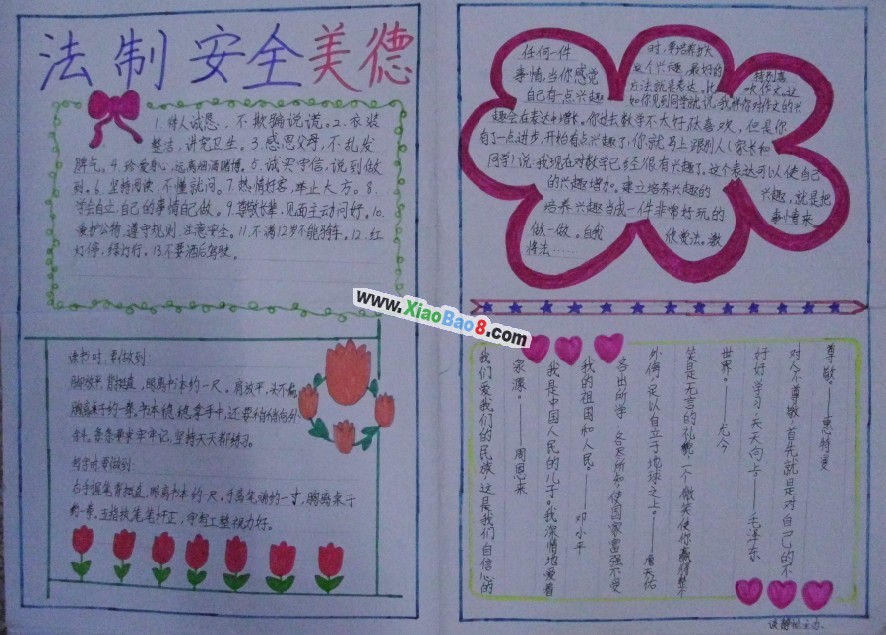 法制安全美德
1.待人诚恳，不欺骗说谎。2.衣装
整洁，讲究卫生。3.感恩父母，不乱发
脾气。4.珍爱身心，远离烟酒赌博。5.诚实守信，说到做
到。6.坚持阅读，不懂就问。7.热情好客，举止大方。8.
学会自立，自己的事情自己做。9.尊敬长辈，见面主动问好。10.
爱护公物，遵守规则，注意安全。11.不满12岁不能骑车。12.红
灯停，绿灯行。13.不要酒后驾驶。
任何一件
事情，当你感觉
自己有一点兴趣
时，要培养扩大
这个兴趣，最好的
方法就是表达。比
如你见到同学就说，我
特别喜
欢作文。这
样你对作文的兴
趣会在表达中增长。你过去数学不太好
喜欢，但是你
有了一点进步，开始有点兴趣了，你就马上跟别人(家长和
同学)说：我现在对数学已经很有兴趣了。这个表达可以使自己
的兴趣增加。建立培养兴趣的
兴趣，就是把
培养兴趣当成一件非常好玩的
事情来
做一做。自我
欣赏法。激
将法……
www.XiaoBao8.com
读书时，要做到：
脚放平，背挺直，眼离书本约一尺。肩放平，头不偏，
胸离桌子约一拳。书本稳稳拿手中，还要稍稍向外
条条要求牢牢记，坚持天天都练习。
写字时要做到：
右手握笔背挺直，眼离书本约一尺，手离笔端约一寸，胸离桌子
约一拳，五指执笔笔杆正，守时工整视力好。
尊敬。——惠特曼
对人不尊敬，首先就是对自己的不
好好学习，天天向上——毛泽东
世界。——尤今
笑是无言的礼貌，一个微笑使你赢得整个
外侮，足以自立于地球之上。——詹天佑
各出所学，各尽所知，使国家富强不受
我的祖国和人民。——邓小平
我是中国人民的儿子。我深情地爱着
泉源。——周恩来
我们爱我们的民族，这是我们自信心的
主办、